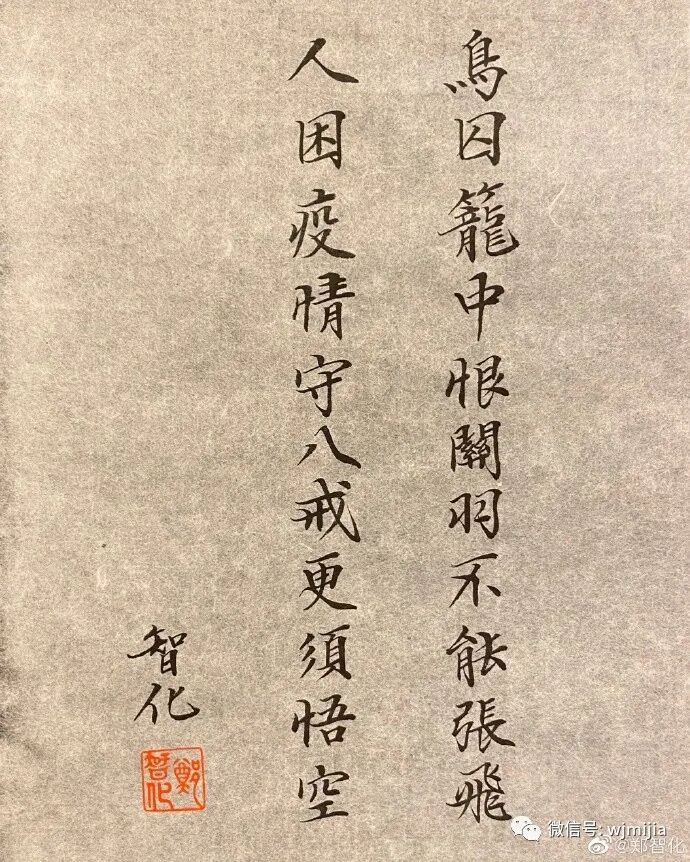 鳥囚籠中恨關羽不能張飛
人困疫情守八戒更須悟空
智化
鄭智化
微信号: wjmijia
@郑智化